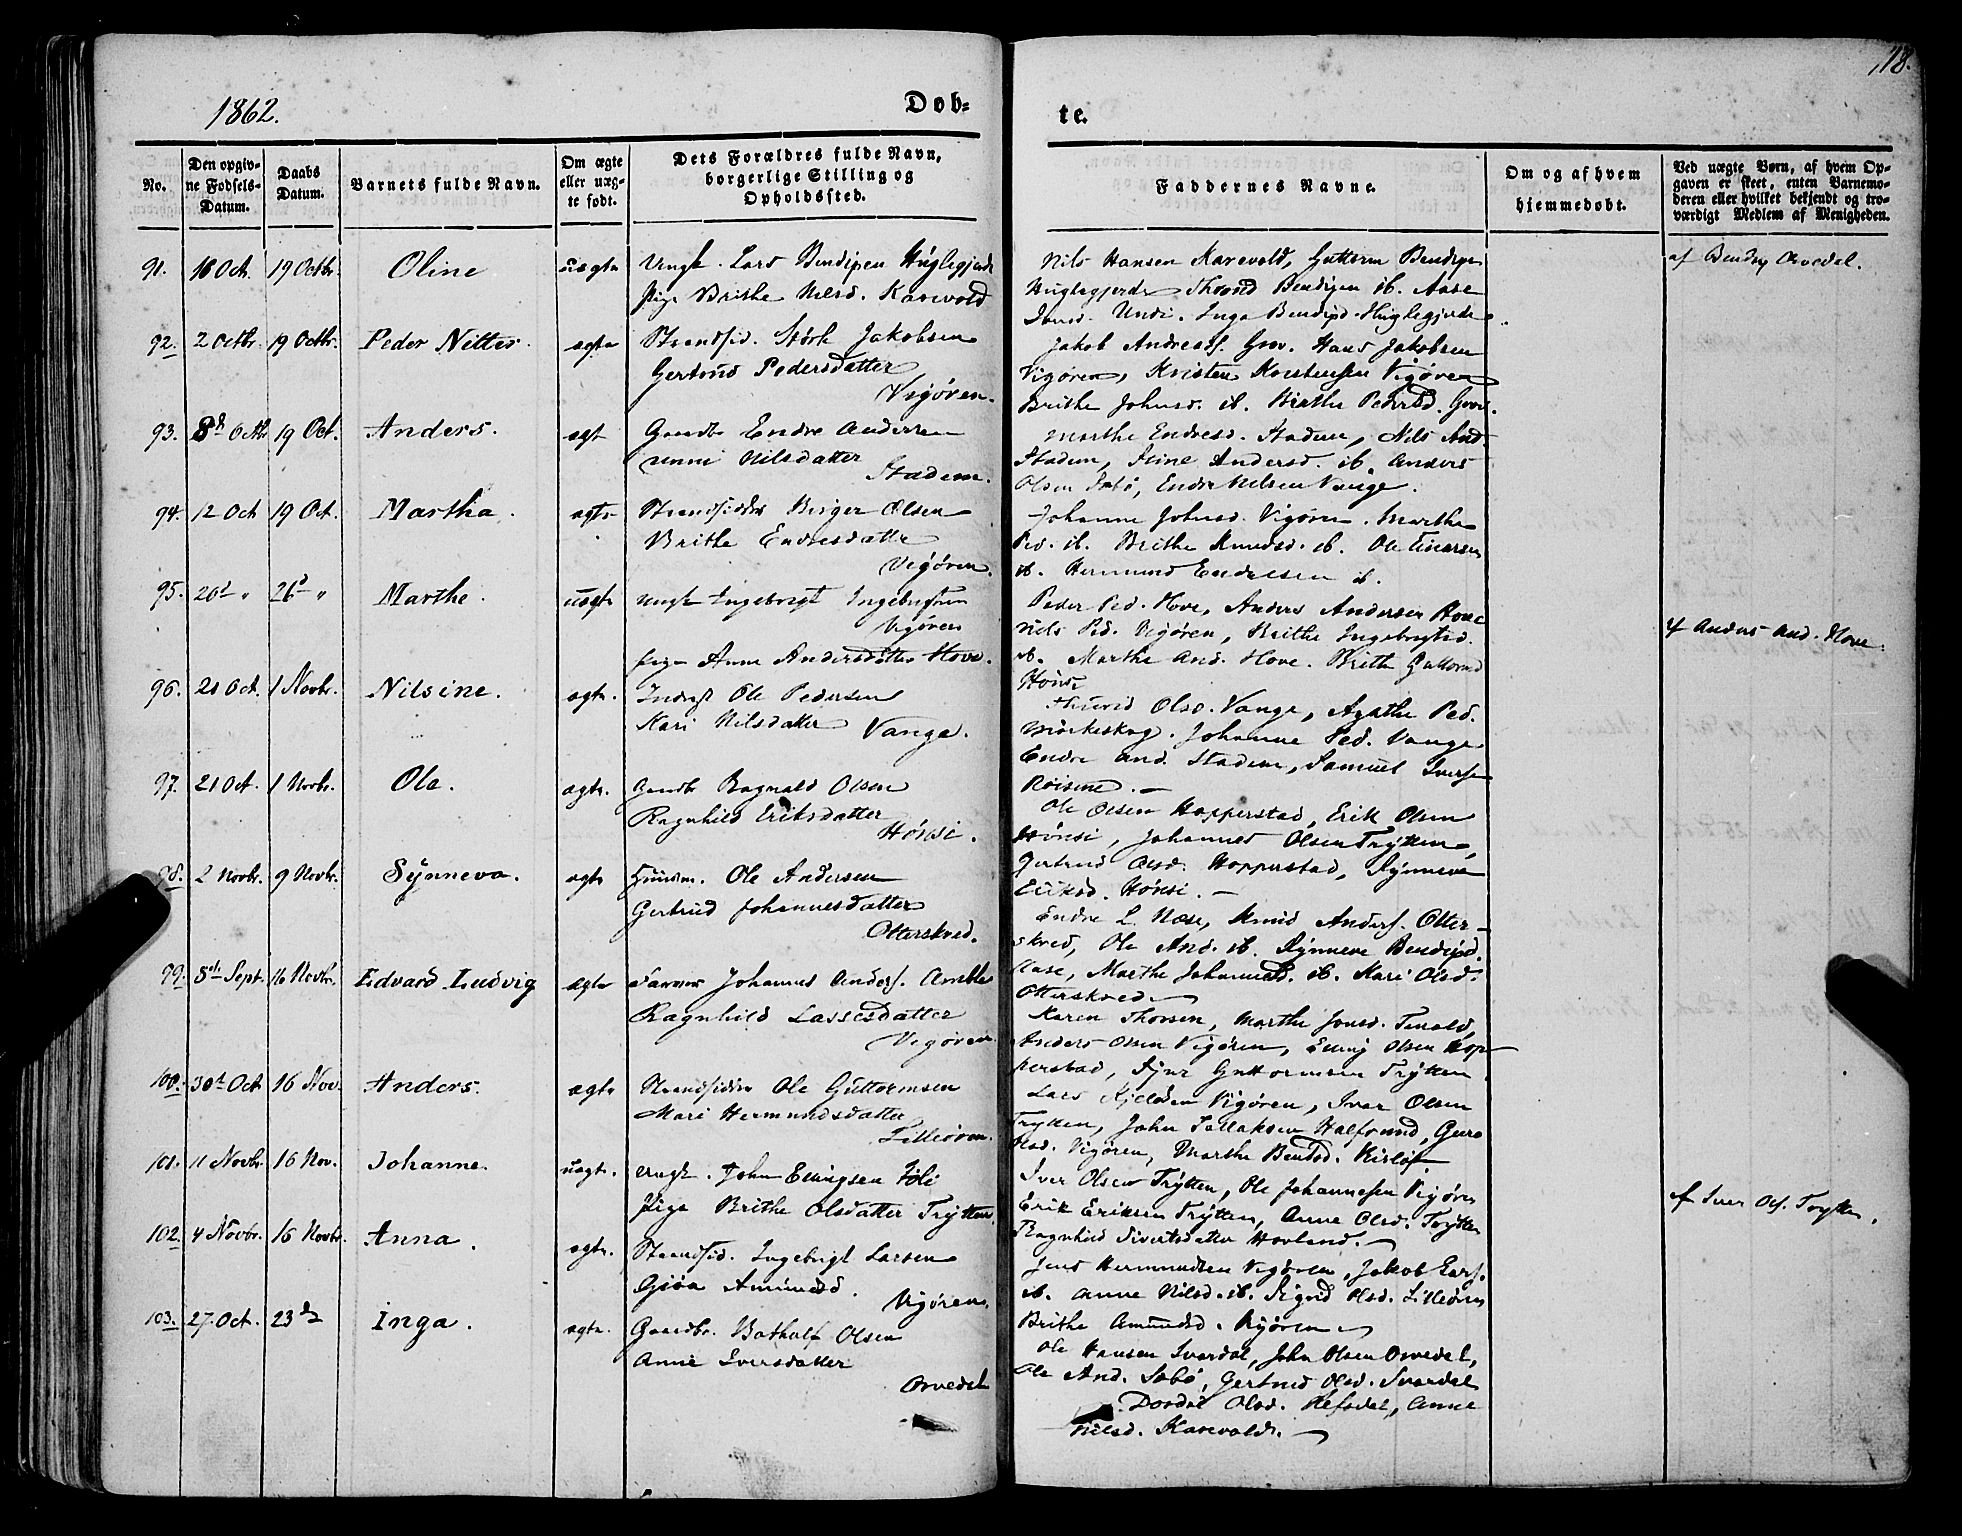 118.
1862.
Døb-
te.
No.
Den opgiv-
ne Fødsels-
Datum.
Daabs
Datum.
Barnets fulde Navn.
Om ægte
eller uæg-
te født.
Dets Forældres fulde Navn,
borgerlige Stilling og
Opholdssted.
Faddernes Navne.
Om og af hvem
hjemmedøbt.
Ved uægte Børn, af hvem Op-
gaven er skeet, enten Barnemo-
deren eller hvilket bekjendt og tro-
værdigt Medlem af Menigheden.
91. 16 Oct. 19 Octbr. Oline uægte Ungk. Lars Bendixen Huglegjerde
Pige Brithe Nilsd. Karevold
Nils Hansen Karevold, Guttorm Bendixen
Huglegjerde Bendixen ib. Aase
Undi. Inga Bendixd. Huglegjerde.
af Bendix Orvedal.
92. 2 Octbr. 19 Octbr. Peder Nitter. ægte Strandsid. Størk Jakobsen
Gertrud Pedersdatter
Vigøren.
Jakob Andreas. Grov. Hans Jakobsen
Vigøren, Kristen Karstensen Vigøren
Brithe Johnsd. ib. Brithe Pedersd. Grov.
93. 8de Octb 19 Oct. Anders. ægt Gaardbr Endre Andersen
Unni Nilsdatter
Stadem.
Marthe Endresd. Stadem, Nils And.
Stadem, Stine Andersd. ib. Anders
Olsen Sæbø, Endre Nilsen Vange.
94. 12 Oct 19 Oct. Martha. ægte Strandsidder Birger Olsen
Brithe Endresdatter
Vigøren.
Johanne Johnsd. Vigøren. Marthe
Ped. ib. Brithe Knudsd. ib. Ole Einarsen
ib. Hermund Endresen ib.
95. 20d " 26d " Marthe. uægte Ungk Ingebrigt Ingebrigtsen
Vigøren
pige Anne Andersdatter Hove.
Peder Ped. Hove, Anders Andersen Hove
Nils Ped. Vigøren, Brithe Ingebrigtsd.
ib. Marthe And. Hove. Brithe Guttormsd
Hønsi
af Anders And. Hove.
96. 20 Oct. 1 Novbr. Nilsine. ægte. Inderst Ole Pedersen
Kari Nilsdatter Vange.
Olsd. Vange, Agathe Ped.
Mørkeskog. Johanne Ped. Vange
Endre And. Stadem, Samuel Iversen
Røisme.
97. 21 Oct. 1 Novbr. Ole. ægte. Gaardbr Ragnald Olsen
Ragnhild Eriksdatter
Hønsi.
Ole Olsen Hopperstad, Erik Olsen
Hønsi, Johannes Olsen Trytten,
Gertrud Olsd. Hopperstad, Synneve
Eriksd. Hønsi.
98. 2 Novbr. 9 Novbr. Synneva. ægte Huusm. Ole Andersen
Gertrud Johannesdatter
Otterskred.
Endre L. Næse, Knud Anders. Otter-
skred, Ole And. ib. Synneve Bendixd.
Næse, Marthe Johannesd. ib. Kari Olsd.
Otterskred.
99. 5te Sept. 16 Novbr. Edvard Ludvig ægte Farver Johannes Anders. Amble
Ragnhild Lassesdatter
Vigøren
Karen Thorsen, Marthe Jonsd. Tenold,
Anders Olsen Vigøren, Elling Olsen Hop-
perstad, Sjur Guttormsen Trytten.
100. 30te Oct 16 Nov. Anders. ægte Strandsidder Ole Guttormsen
Mari Hermundsdatter
Lilleøren.
Lars Kjeldsen Vigøren, Iver Olsen
Trytten, John Sallaksen Halfsund, Guro
Olsd. Vigøren, Marthe Bendsd.
101. 11 Novbr. 16 Nov. Johanne. uægte. Ungk. John Ellingsen Føli
Pige Brithe Olsdatter Trytten.
Iver Olsen Trytten, Ole Johannesen Vigøren
Erik Eriksen Trytten, Anne Olsd. Trytten
Ragnhild Sivertsdatter Hovland.
af Iver Ols. Trytten.
102. 4 Novbr. 16 Novbr. Anna. ægte. Strandsid. Ingebrigt Larsen
Gjøa Amundsd.
Vigøren.
Jens Hermundsen Vigøren, Jakob Lars.
ib. Anne Nilsd. ib. Sigrid Olsd. Lilleøren
Brithe Amundsd. Vigøren
103. 27. Oct. 23d Inga. ægte. Gaardbr. Botholf Olsen
Anne Iversdatter
Orvedal
Ole Hansen Svardal, John Olsen Orvedal,
Ole And. Sæbø, Gertrud Olsd. Svardal
Dordei Olsd. Refsdal, Anne
Nilsd. Karevold.